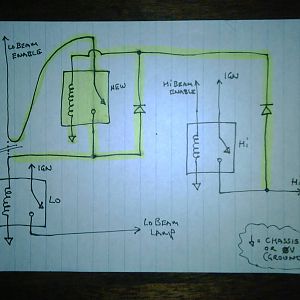 LO BEAM
ENABLE
NEW
Hi BEAM
ENABLE
IGN
Hi
IGN
LO
LO BEAM
LAMP
H
= CHASSIS
OR 0V
(GROUND